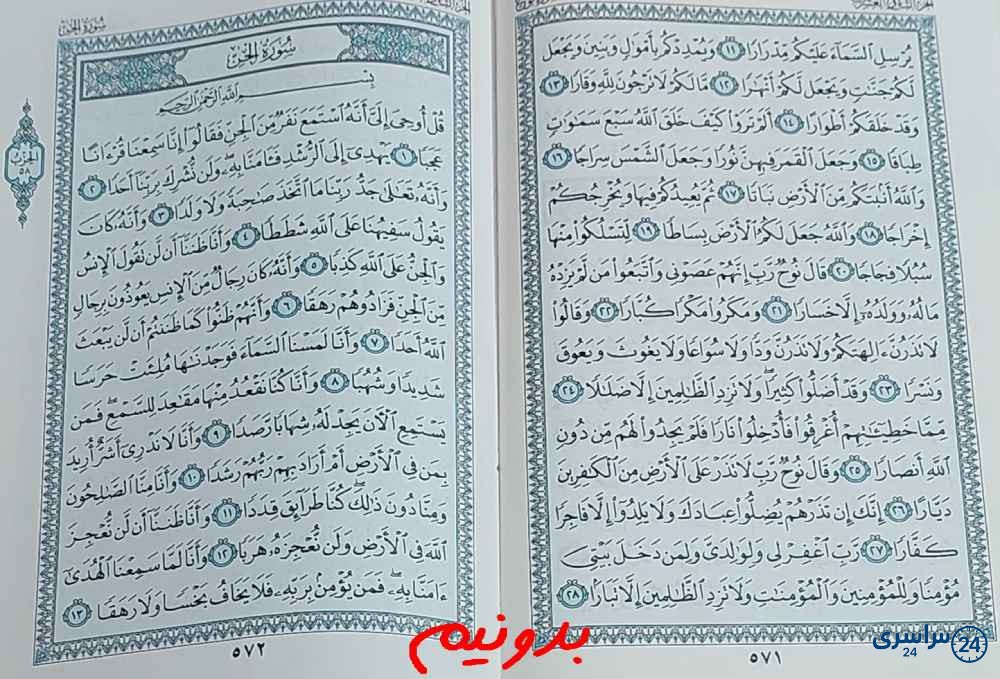 سُورَةُ نُوحٍ
يُرْسِلِ ٱلسَّمَآءَ عَلَيْكُم مِّدْرَارًا ١١ وَيُمْدِدْكُم بِأَمْوَٰلٍ وَبَنِينَ وَيَجْعَل
لَّكُمْ جَنَّٰتٍ وَيَجْعَل لَّكُمْ أَنْهَٰرًا ١٢ مَّا لَكُمْ لَا تَرْجُونَ لِلَّهِ وَقَارًا ١٣
وَقَدْ خَلَقَكُمْ أَطْوَارًا ١٤ أَلَمْ تَرَوْا۟ كَيْفَ خَلَقَ ٱللَّهُ سَبْعَ سَمَٰوَٰتٍ
طِبَاقًا ١٥ وَجَعَلَ ٱلْقَمَرَ فِيهِنَّ نُورًا وَجَعَلَ ٱلشَّمْسَ سِرَاجًا ١٦
وَٱللَّهُ أَنۢبَتَكُم مِّنَ ٱلْأَرْضِ نَبَاتًا ١٧ ثُمَّ يُعِيدُكُمْ فِيهَا وَيُخْرِجُكُمْ
إِخْرَاجًا ١٨ وَٱللَّهُ جَعَلَ لَكُمُ ٱلْأَرْضَ بِسَاطًا ١٩ لِّتَسْلُكُوا۟ مِنْهَا
سُبُلًا فِجَاجًا ٢٠ قَالَ نُوحٌ رَّبِّ إِنَّهُمْ عَصَوْنِى وَٱتَّبَعُوا۟ مَن لَّمْ يَزِدْهُ
مَالُهُۥ وَوَلَدُهُۥٓ إِلَّا خَسَارًا ٢١ وَمَكَرُوا۟ مَكْرًا كُبَّارًا ٢٢ وَقَالُوا۟
لَا تَذَرُنَّ ءَالِهَتَكُمْ وَلَا تَذَرُنَّ وَدًّا وَلَا سُوَاعًا وَلَا يَغُوثَ وَيَعُوقَ
وَنَسْرًا ٢٣ وَقَدْ أَضَلُّوا۟ كَثِيرًا وَلَا تَزِدِ ٱلظَّٰلِمِينَ إِلَّا ضَلَٰلًا ٢٤
مِّمَّا خَطِيٓـَٰٔتِهِمْ أُغْرِقُوا۟ فَأُدْخِلُوا۟ نَارًا فَلَمْ يَجِدُوا۟ لَهُم مِّن دُونِ
ٱللَّهِ أَنصَارًا ٢٥ وَقَالَ نُوحٌ رَّبِّ لَا تَذَرْ عَلَى ٱلْأَرْضِ مِنَ ٱلْكَٰفِرِينَ
دَيَّارًا ٢٦ إِنَّكَ إِن تَذَرْهُمْ يُضِلُّوا۟ عِبَادَكَ وَلَا يَلِدُوٓا۟ إِلَّا فَاجِرًا
كَفَّارًا ٢٧ رَّبِّ ٱغْفِرْ لِى وَلِوَٰلِدَىَّ وَلِمَن دَخَلَ بَيْتِىَ
مُؤْمِنًا وَلِلْمُؤْمِنِينَ وَٱلْمُؤْمِنَٰتِ وَلَا تَزِدِ ٱلظَّٰلِمِينَ إِلَّا تَبَارًۢا ٢٨
٥٧١
سُورَةُ الجِنِّ
سُورَةُ الجِنِّ
بِسْمِ ٱللَّهِ ٱلرَّحْمَٰنِ ٱلرَّحِيمِ
قُلْ أُوحِىَ إِلَىَّ أَنَّهُ ٱسْتَمَعَ نَفَرٌ مِّنَ ٱلْجِنِّ فَقَالُوٓا۟ إِنَّا سَمِعْنَا قُرْءَانًا
عَجَبًا ١ يَهْدِىٓ إِلَى ٱلرُّشْدِ فَـَٔامَنَّا بِهِۦ وَلَن نُّشْرِكَ بِرَبِّنَآ أَحَدًا ٢
وَأَنَّهُۥ تَعَٰلَىٰ جَدُّ رَبِّنَا مَا ٱتَّخَذَ صَٰحِبَةً وَلَا وَلَدًا ٣ وَأَنَّهُۥ كَانَ
يَقُولُ سَفِيهُنَا عَلَى ٱللَّهِ شَطَطًا ٤ وَأَنَّا ظَنَنَّآ أَن لَّن تَقُولَ ٱلْإِنسُ
وَٱلْجِنُّ عَلَى ٱللَّهِ كَذِبًا ٥ وَأَنَّهُۥ كَانَ رِجَالٌ مِّنَ ٱلْإِنسِ يَعُوذُونَ بِرِجَالٍ
مِّنَ ٱلْجِنِّ فَزَادُوهُمْ رَهَقًا ٦ وَأَنَّهُمْ ظَنُّوا۟ كَمَا ظَنَنتُمْ أَن لَّن يَبْعَثَ
ٱللَّهُ أَحَدًا ٧ وَأَنَّا لَمَسْنَا ٱلسَّمَآءَ فَوَجَدْنَٰهَا مُلِئَتْ حَرَسًا
شَدِيدًا وَشُهُبًا ٨ وَأَنَّا كُنَّا نَقْعُدُ مِنْهَا مَقَٰعِدَ لِلسَّمْعِ فَمَن
يَسْتَمِعِ ٱلْـَٔانَ يَجِدْ لَهُۥ شِهَابًا رَّصَدًا ٩ وَأَنَّا لَا نَدْرِىٓ أَشَرٌّ أُرِيدَ
بِمَن فِى ٱلْأَرْضِ أَمْ أَرَادَ بِهِمْ رَبُّهُمْ رَشَدًا ١٠ وَأَنَّا مِنَّا ٱلصَّٰلِحُونَ
وَمِنَّا دُونَ ذَٰلِكَ كُنَّا طَرَآئِقَ قِدَدًا ١١ وَأَنَّا ظَنَنَّآ أَن لَّن نُّعْجِزَ
ٱللَّهَ فِى ٱلْأَرْضِ وَلَن نُّعْجِزَهُۥ هَرَبًا ١٢ وَأَنَّا لَمَّا سَمِعْنَا ٱلْهُدَىٰٓ
ءَامَنَّا بِهِۦ فَمَن يُؤْمِنۢ بِرَبِّهِۦ فَلَا يَخَافُ بَخْسًا وَلَا رَهَقًا ١٣
الحِزْب
٥٨
٥٧٢
بدونیم
سراسری 24
24